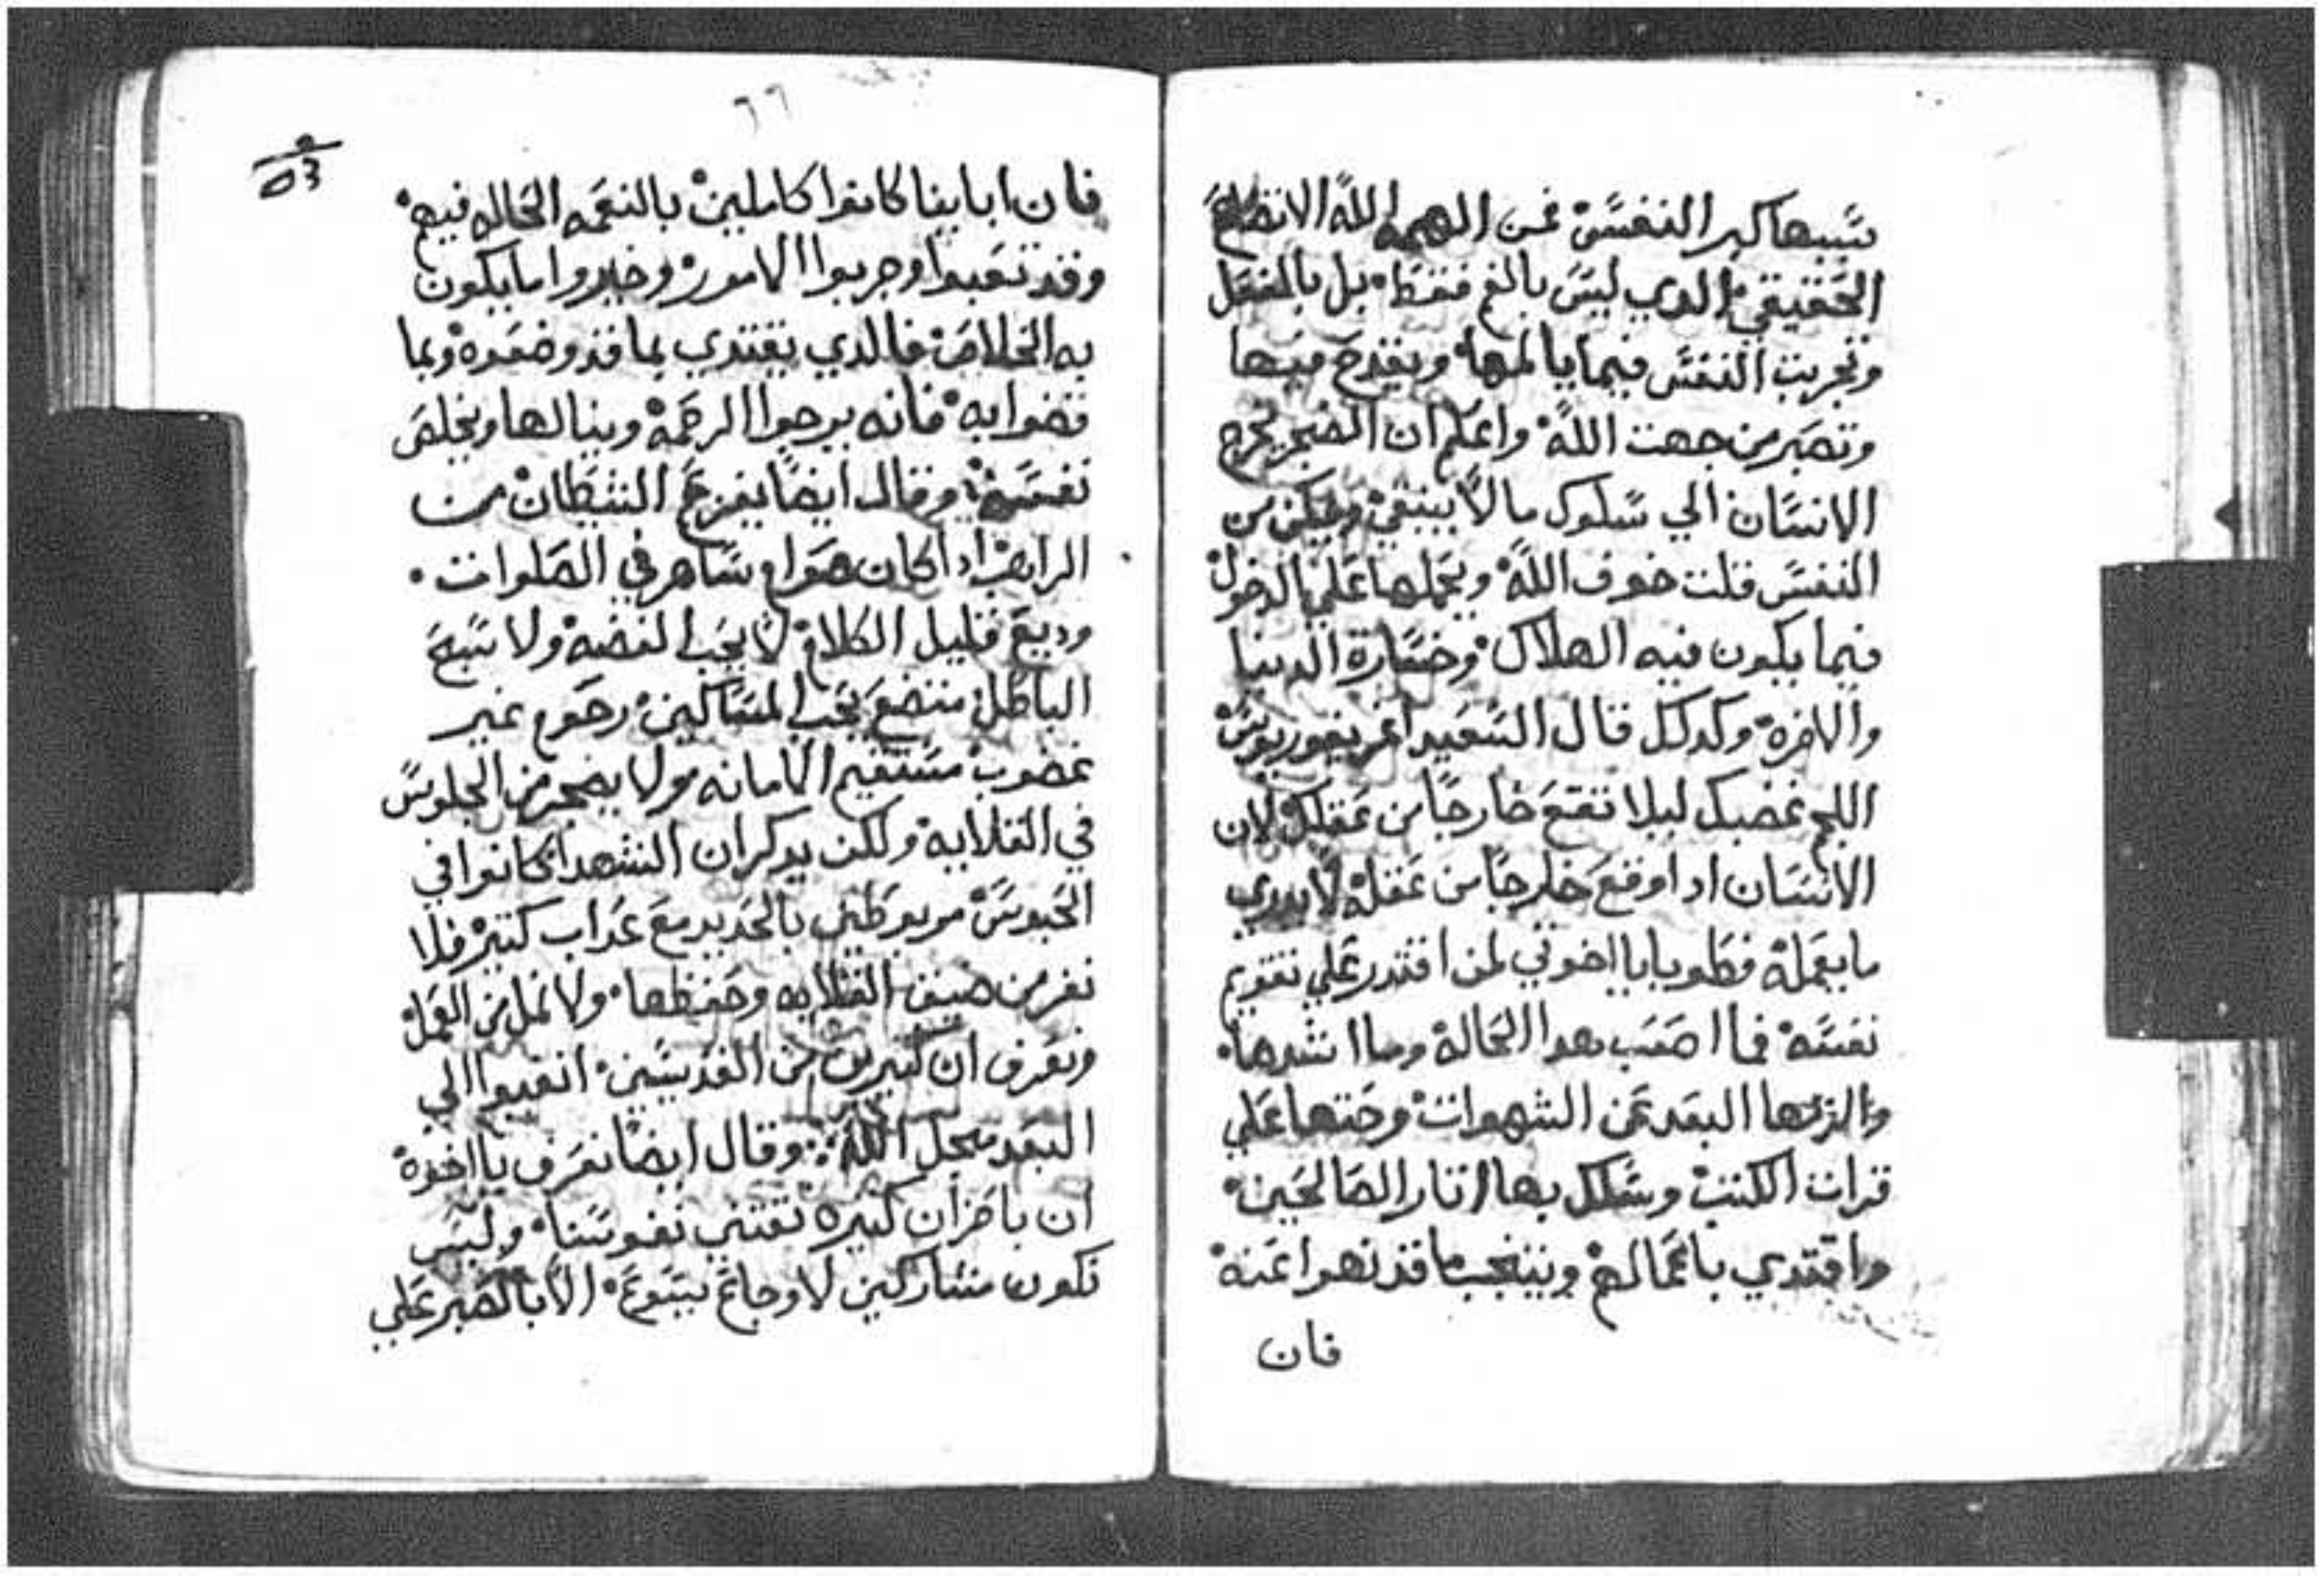 سببها كبر النفس عن الهمه الله الاتضاع
الحقيقي الدي ليس بالفم فقط بل بالفعل
وتجربت النفس فيما يالمها ويقدح فيها
وتصبر من جهت الله واعلم ان الضجر يخرج
الانسان الي سلوك ما لا ينبغي ويمكن من
النفس قلت خوف الله ويحملها علي الدخول
فيما يكون فيه الهلاك وخسارة الدنيا
والاخره وكدلك قال السعيد اغريغوريوس
اللجم غضبك ليلا تقع خارجا من عقلك لان
الانسان ادا وقع خارجا من عقله لا يدري
ما يعمله فطوبا يا اخوتي لمن اقتدر علي تقويم
نفسه فما اصعب هدا الحاله وما اشدها
والزمها البعد عن الشهوات وحتها علي
قرات الكتب وسلك بها اتار الصالحين
واقتدي باعمالهم ويتجنب ما قد نهوا عنه
فان
٦٦
٥٣
فان اباينا كانوا كاملين بالنعمه الحاله فيهم
وقد تعبوا وجربوا الامور وخبروا ما يكون
به الخلاص فالدي يقتدي بما قد وضعوه وبما
قضوا به فانه يرجوا الرحمه وينالها ويخلص
نفسه وقال ايضا يفزع الشيطان من
الراهب ادا كان صوام وساهر في الصلوات
وديع قليل الكلام لا يحب الفضه ولا سبح
الباطل متضع يحب المساكين رحوم غير
غضوب مستقيم الامانه ولا يضجر من الجلوس
في القلايه ولكن يدكر ان الشهدا كانوا في
الحبوس مربوطين بالحديد مع عداب كتير فلا
نفر من ضيق القلايه وحفظها ولا نمل من العمل
ونعرف ان كتيرين من القديسين اتعبوا الي
البعد من اجل الله وقال ايضا نعرف يا اخوة
ان باحزان كتيره نقتني نفوسنا وليس
نكون مشاركين لاوجاع يسوع الا بالصبر علي